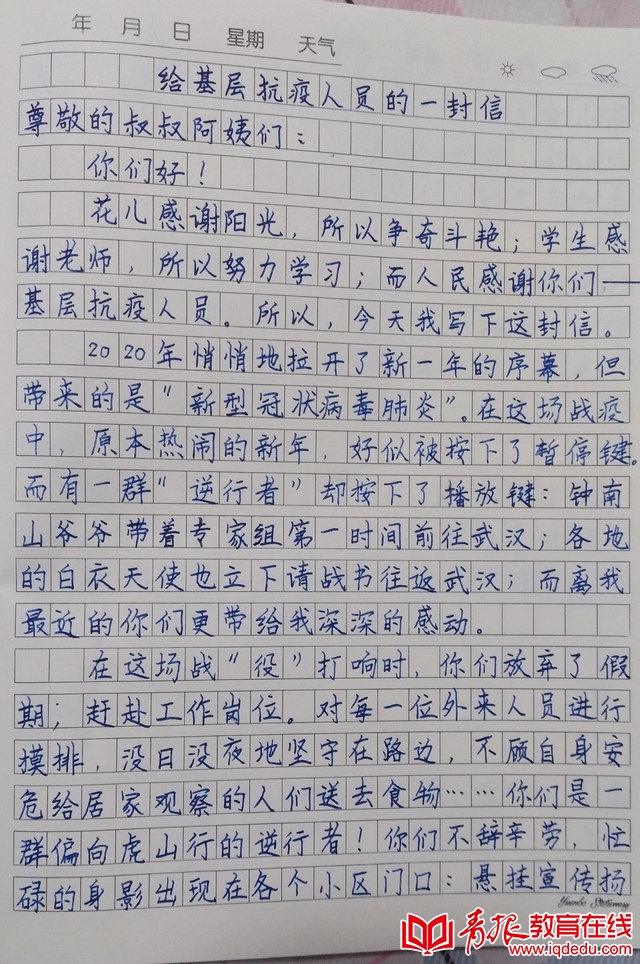 年 月 日 星期 天气
给基层抗疫人员的一封信
尊敬的叔叔阿姨们：
你们好！
花儿感谢阳光，所以争奇斗艳；学生感
谢老师，所以努力学习；而人民感谢你们——
基层抗疫人员。所以，今天我写下这封信。
2020年悄悄地拉开了新一年的序幕，但
带来的是"新型冠状病毒肺炎"。在这场战疫
中，原本热闹的新年，好似被按下了暂停键。
而有一群"逆行者"却按下了播放键：钟南
山爷爷带着专家组第一时间前往武汉；各地
的白衣天使也立下请战书往返武汉；而离我
最近的你们更带给我深深的感动。
在这场战"役"打响时，你们放弃了假
期；赶赴工作岗位。对每一位外来人员进行
摸排，没日没夜地坚守在路边，不顾自身安
危给居家观察的人们送去食物……你们是一
群偏向虎山行的逆行者！你们不辞辛劳，忙
碌的身影出现在各个小区门口：悬挂宣传扬
Yuanbo Stationery
青报教育在线
www.iqdedu.com